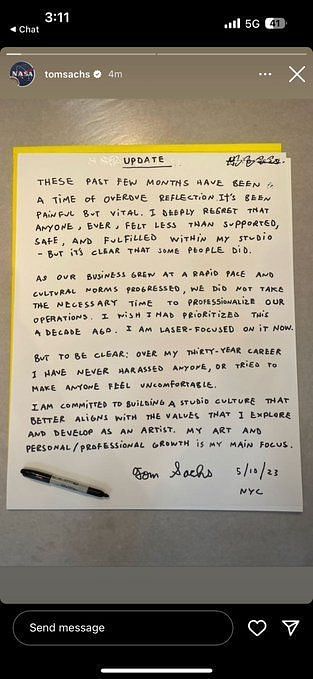 3:11
5G 41
Chat
NASA
tomsachs 4m
UPDATE
THESE PAST FEW MONTHS HAVE BEEN
A TIME OF OVERDUE REFLECTION. IT'S BEEN
PAINFUL BUT VITAL. I DEEPLY REGRET THAT
ANYONE, EVER, FELT LESS THAN SUPPORTED,
SAFE, AND FULFILLED WITHIN MY STUDIO
- BUT IT'S CLEAR THAT SOME PEOPLE DID.
AS OUR BUSINESS GREW AT A RAPID PACE AND
CULTURAL NORMS PROGRESSED, WE DID NOT TAKE
THE NECESSARY TIME TO PROFESSIONALIZE OUR
OPERATIONS. I WISH I HAD PRIORITIZED THIS
A DECADE AGO. I AM LASER-FOCUSED ON IT NOW.
BUT TO BE CLEAR: OVER MY THIRTY-YEAR CAREER
I HAVE NEVER HARASSED ANYONE, OR TRIED TO
MAKE ANYONE FEEL UNCOMFORTABLE.
I AM COMMITTED TO BUILDING A STUDIO CULTURE THAT
BETTER ALIGNS WITH THE VALUES THAT I EXPLORE
AND DEVELOP AS AN ARTIST. MY ART AND
PERSONAL/PROFESSIONAL GROWTH IS MY MAIN FOCUS.
Tom Sachs 5/10/23
NYC
Send message